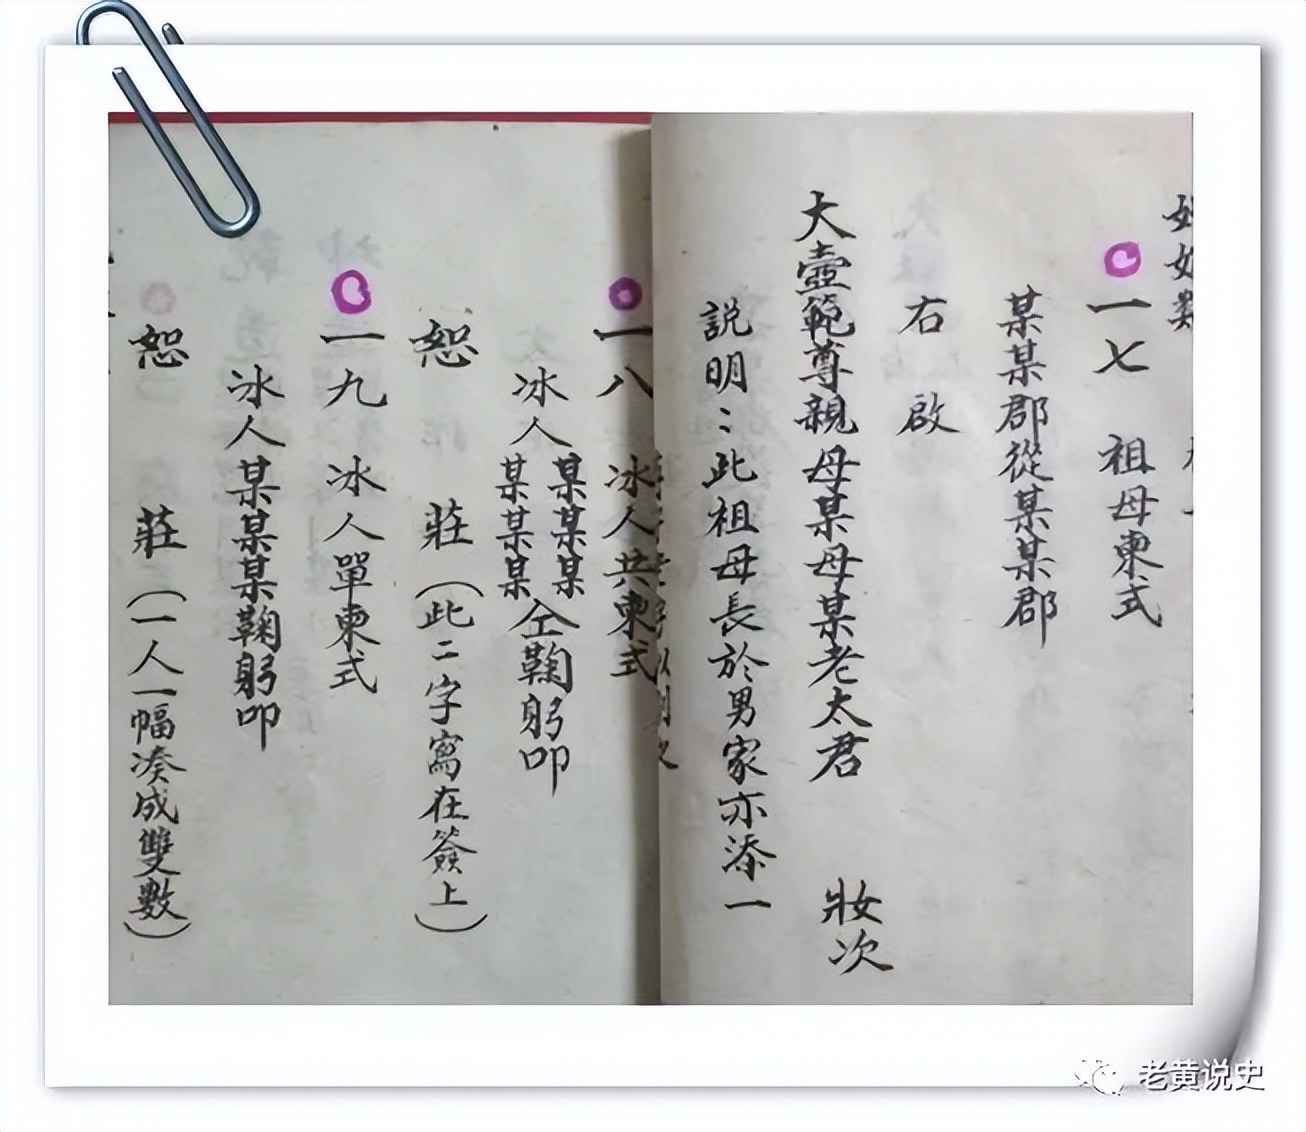 一七 祖母柬式
某某郡從某某郡
右啟
大壼範尊親母某母某老太君 妝次
説明：此祖母長於男家亦添一
一八 冰人共柬式
冰人某某某 某某某 仝鞠躬叩
恕 莊（此二字寫在簽上）
一九 冰人單柬式
冰人某某某鞠躬叩
恕 莊（一人一幅凑成雙數）
老黄说史